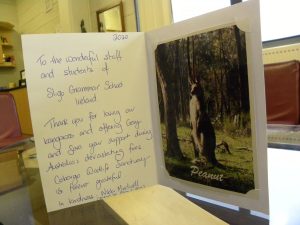 2020
To the wonderful staff
and students of
Sligo Grammar School
Ireland
Thank you for loving our
kangaroos and offering
and give your support during
Australia's devastating fires
Cobargo Wildlife Sanctuary
is forever grateful
In kindness
Peanut